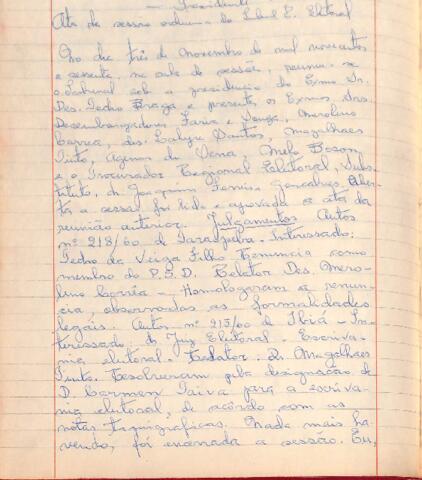 Presidente
Ata da sessão ordinaria do Tribul R. Eleitoral
No dia três de novembro de mil novecentos
e sessenta, na sala de sessão, reuniu-se
o Tribunal sob a presidencia do Exmo Sr.
Des. Pedro Braga e presente os Exmos Srs.
Desembargadores Faria e Souza, Merolino
Corrêa, drs. Edesio Santos, Magalhães
Pinto, Agenor de Sena, Melo Boson,
e o Procurador Regional Eleitoral, Subs-
tituto, dr. Joaquim Ferreira Gonçalves. Aber-
ta a sessão, foi lida e aprovada a ata da
reunião anterior. Julgamentos Autos
nº 218/60 de Paraopeba - Interessado:
Pedro da Veiga Filho Renuncia como
membro do P.S.D. Relator Des. Mero-
lino Corrêa - Homologaram a renun-
cia, observadas as formalidades
legais. Autos nº 215/60 de Ibiá - In-
teressado: dr Juiz Eleitoral - Escriva-
nia eleitoral. Relator: dr. Magalhães
Pinto. Resolveram pela designação de
D. Carmen Paiva para a escriva-
nia eleitoral, de acôrdo com as
notas taquigraficas. Nada mais ha-
vendo, foi encerrada a sessão. Eu,